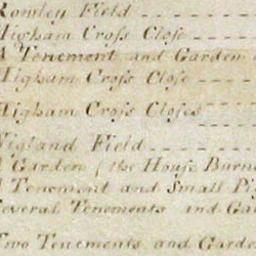 Rowley Field
Higham Croſs Cloſe
A Tenement and Garden
Higham Croſs Cloſe
Higham Croſs Cloſes
Wigland Field
A Garden (the Houſe Burn
A Tenement and Small Pi
Several Tenements and Ga
Two Tenements and Garde